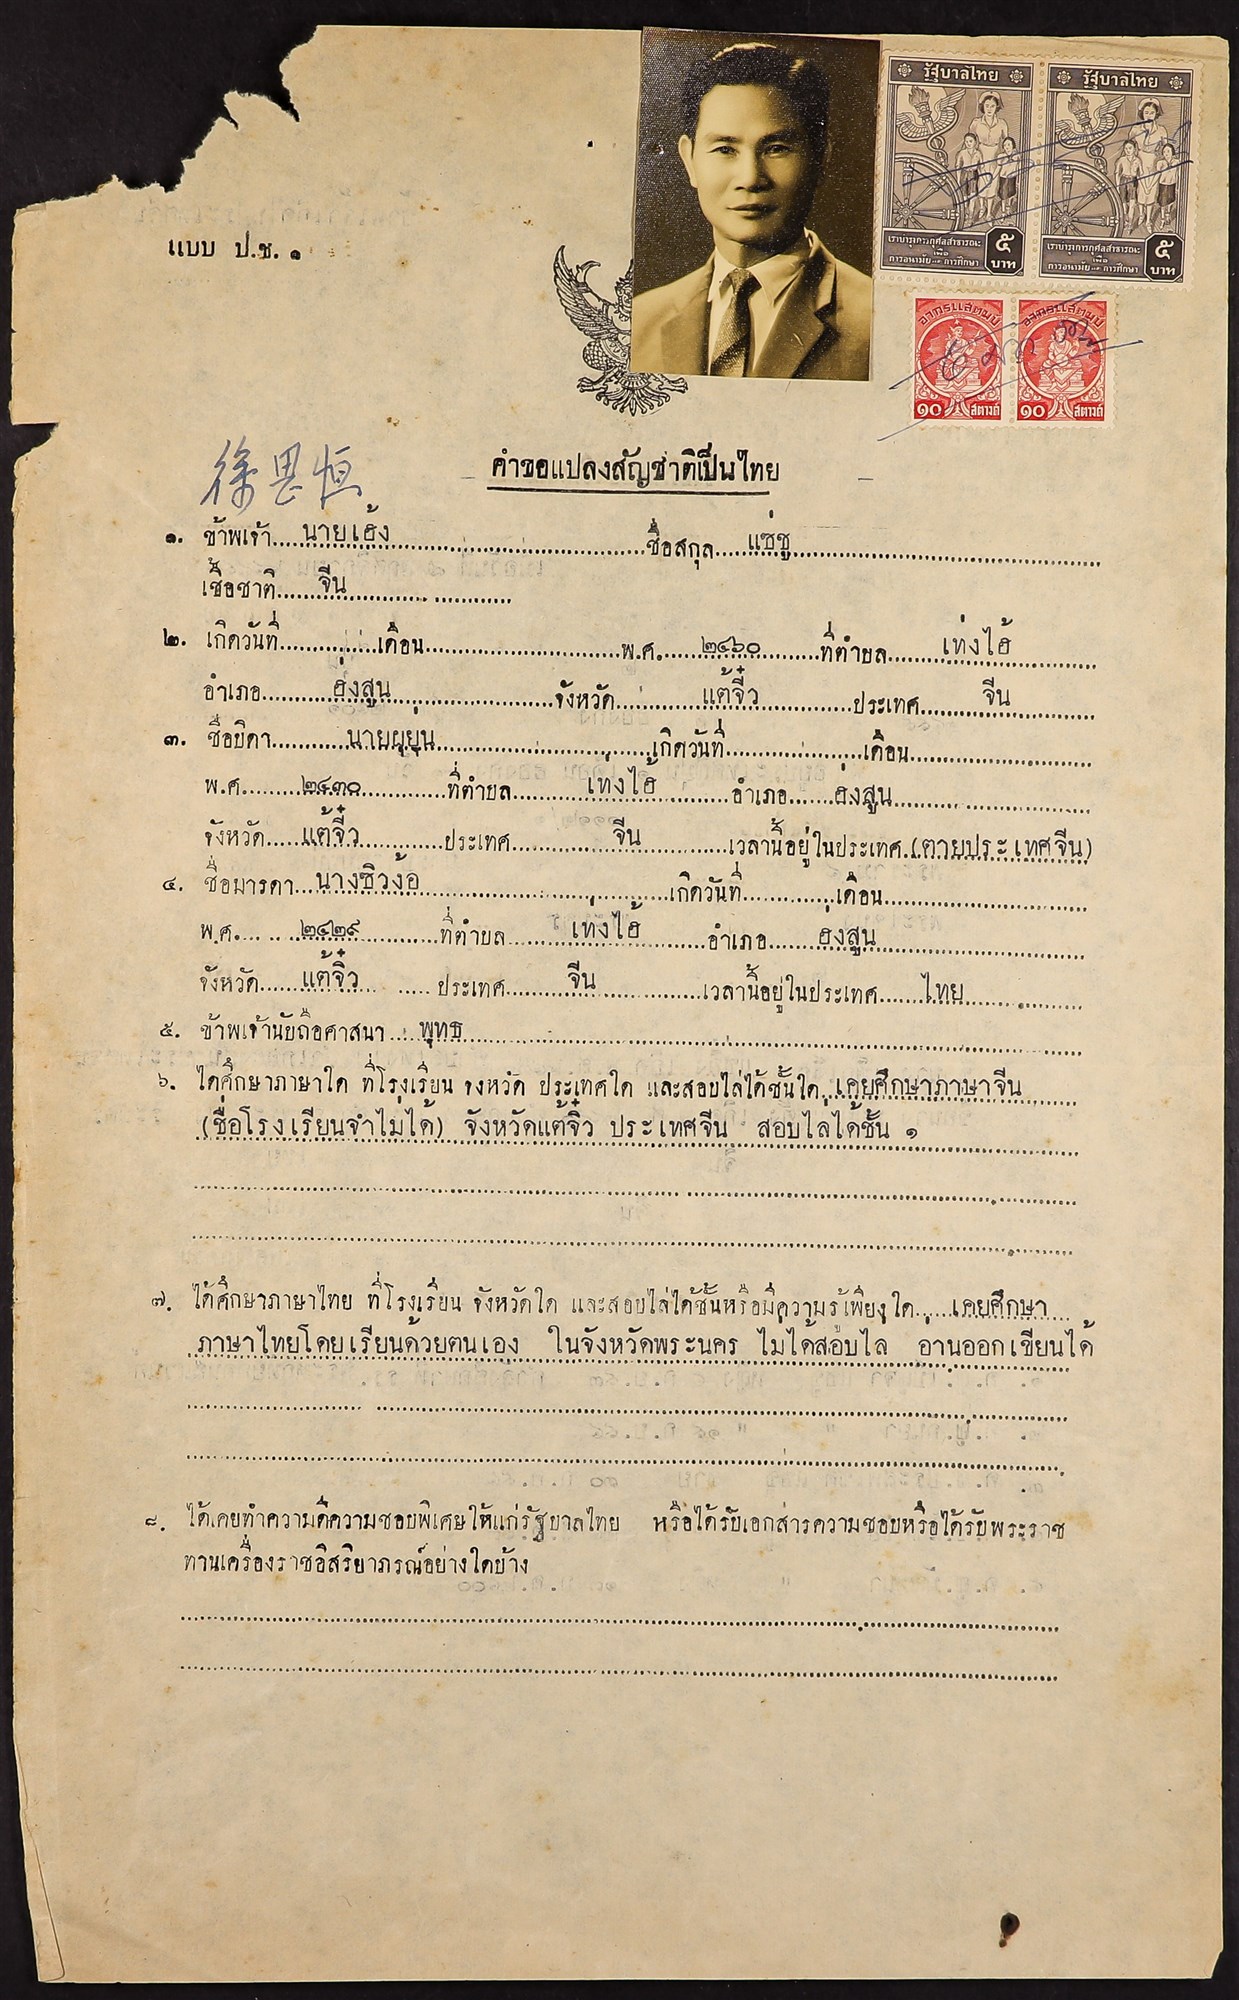 รัฐบาลไทย รัฐบาลไทย
เราบำรุงการกุศลสาธารณะ เราบำรุงการกุศลสาธารณะ
เพื่อ เพื่อ
การอนามัย และ การศึกษา การอนามัย และ การศึกษา
๕ บาท ๕ บาท
แบบ ป.ช. ๑
อากรแสตมป์ อากรแสตมป์
๑๐ สตางค์ ๑๐ สตางค์
徐恩恒
คำขอแปลงสัญชาติเป็นไทย
๑. ข้าพเจ้า นายเฮ้ง ชื่อสกุล แซ่ชู
เชื้อชาติ จีน
๒. เกิดวันที่ เดือน พ.ศ. ๒๔๖๐ ที่ตำบล เท่งไฮ้
อำเภอ ฮ่งสูน จังหวัด แต้จิ๋ว ประเทศ จีน
๓. ชื่อบิดา นายผุยุ่น เกิดวันที่ เดือน
พ.ศ. ๒๔๓๐ ที่ตำบล เท่งไฮ้ อำเภอ ฮ่งสูน
จังหวัด แต้จิ๋ว ประเทศ จีน เวลานี้อยู่ในประเทศ (ตายประเทศจีน)
๔. ชื่อมารดา นางซิวง้อ เกิดวันที่ เดือน
พ.ศ. ๒๔๒๙ ที่ตำบล เท่งไฮ้ อำเภอ ฮ่งสูน
จังหวัด แต้จิ๋ว ประเทศ จีน เวลานี้อยู่ในประเทศ ไทย
๕. ข้าพเจ้านับถือศาสนา พุทธ
๖. ได้ศึกษาภาษาใด ที่โรงเรียน จังหวัด ประเทศใด และสอบไล่ได้ชั้นใด เคยศึกษาภาษาจีน
(ชื่อโรงเรียนจำไม่ได้) จังหวัดแต้จิ๋ว ประเทศจีน สอบไล่ได้ชั้น ๑
๗. ได้ศึกษาภาษาไทย ที่โรงเรียน จังหวัดใด และสอบไล่ได้ชั้นหรือมีความรู้เพียงใด เคยศึกษา
ภาษาไทยโดยเรียนด้วยตนเอง ในจังหวัดพระนคร ไม่ได้สอบไล่ อ่านออกเขียนได้
๘. ได้เคยทำความดีความชอบพิเศษให้แก่รัฐบาลไทย หรือได้รับเอกสารความชอบหรือได้รับพระราช
ทานเครื่องราชอิสริยาภรณ์อย่างใดบ้าง